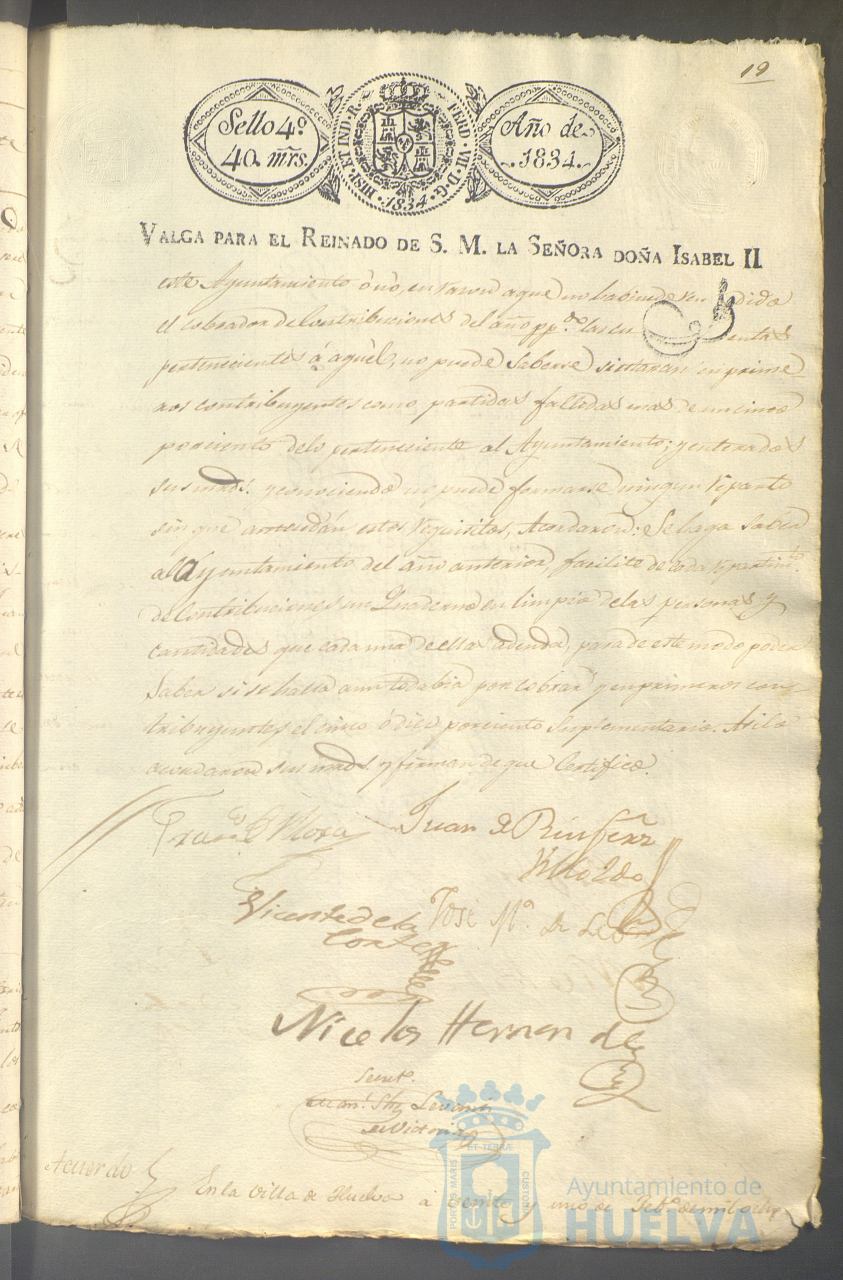 19
Sello 4º
40. mrs.
HISP. ET IND. R. FERD. VII. D. G. 1834
Año de
1834.
VALGA PARA EL REINADO DE S. M. LA SEÑORA DOÑA ISABEL II
este Ayuntamiento ó nó, en razon a que no habiendo rendido
el cobrador de Contribuciones del año pp.do las cuentas
pertenecientes á aquèl, no puede Saberse si estaran en prime
ros contribuyentes como partidas fallidas mas de un cinco
porciento delo perteneciente al Ayuntamiento; y enterados
sus mrds. y conociendo no puede formarse ningun reparto
sin que antecedan estos requisitos, Acordaron: Se haga saber
al Ayuntamiento del año anterior, facilite de cada repartimto.
de Contribuciones un Quaderno en limpio delas personas y
cantidades que cada una de ellas adeuda, para de este modo poder
Saber si se halla aun todabia por cobrar y en primeros con
tribuyentes el cinco ó diez porciento Suplementario. Asi lo
acordaron sus mrds y firman de que Certifico.
Franco. D Mora Juan J. Rin
Vicente de la José Mª. de Leon
Corte
Nicolas Hernandez
Secret.
de Victoria
Acuerdo
En la Villa de Huelva á veinte y uno de
PORTUS MARIS ET TERRAE CUSTODIA
Ayuntamiento de
HUELVA